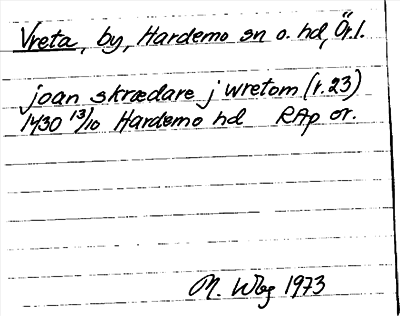 Vreta, by, Hardemo sn o. hd, Ör.l.
joan skrædare j wretom (r. 23)
1430 13/10 Hardemo hd RAp or.
M. Wbg 1973